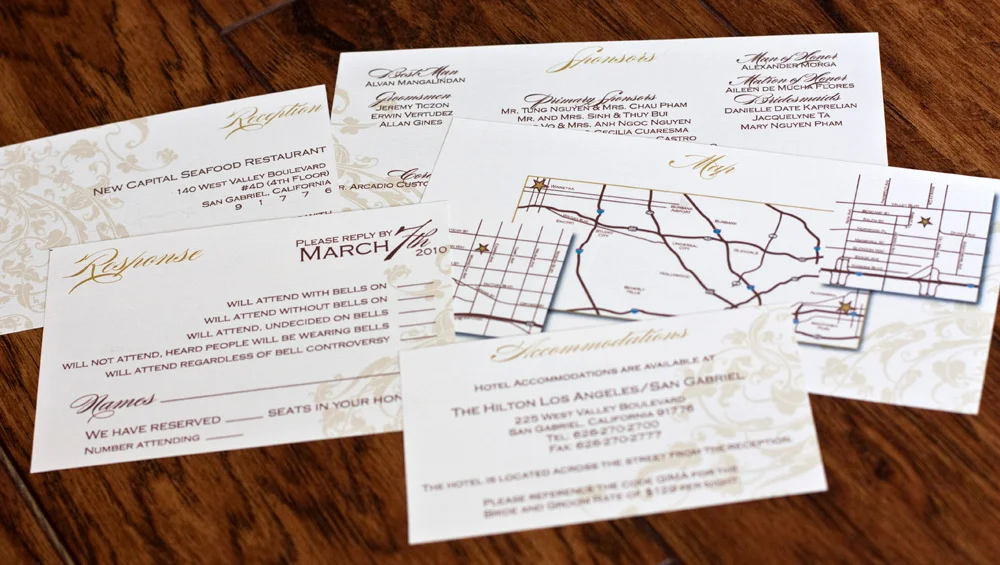 Sponsors
Best Man
ALVAN MANGALINDAN
Groomsmen
JEREMY TICZON
ERWIN VERTUDEZ
ALLAN GINES
Primary Sponsors
MR. TUNG NGUYEN & MRS. CHAU PHAM
MR. AND MRS. SINH & THUY BUI
VO & MRS. ANH NGOC NGUYEN
CECILIA CUARESMA
CASTRO
R. ARCADIO CUSTO
Man of Honor
ALEXANDER MORGA
Matron of Honor
AILEEN DE MUCHA FLORES
Bridesmaids
DANIELLE DATE KAPRELJAN
JACQUELYNE TA
MARY NGUYEN PHAM
Reception
NEW CAPITAL SEAFOOD RESTAURANT
140 WEST VALLEY BOULEVARD
#4D (4TH FLOOR)
SAN GABRIEL, CALIFORNIA
9 1 7 7 6
Map
WINNETKA
BURBANK AIRPORT
BURBANK
STUDIO CITY
UNIVERSAL CITY
GLENDALE
HOLLYWOOD
BEVERLY HILLS
Response
PLEASE REPLY BY
MARCH 7th
2010
WILL ATTEND WITH BELLS ON
WILL ATTEND WITHOUT BELLS ON
WILL ATTEND, UNDECIDED ON BELLS
WILL NOT ATTEND, HEARD PEOPLE WILL BE WEARING BELLS
WILL ATTEND REGARDLESS OF BELL CONTROVERSY
Names
WE HAVE RESERVED ____ SEATS IN YOUR HON
NUMBER ATTENDING ____
Accommodations
HOTEL ACCOMMODATIONS ARE AVAILABLE AT
THE HILTON LOS ANGELES/SAN GABRIEL
225 WEST VALLEY BOULEVARD
SAN GABRIEL, CALIFORNIA 91776
TEL: 626-270-2700
FAX: 626-270-2777
THE HOTEL IS LOCATED ACROSS THE STREET FROM THE RECEPTION.
PLEASE REFERENCE THE CODE GIMA FOR THE
BRIDE AND GROOM RATE OF $129 PER NIGHT